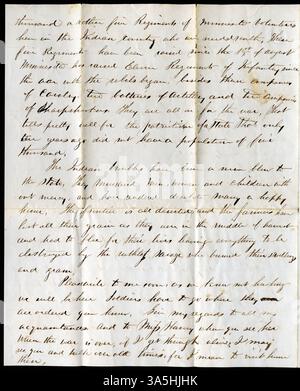 thousand
here in the Indian country who
five Regiments have been raised since the 1st of August
Minnesota has raised Eleven Regiments of Infantry since
the war with the rebels began, besides three companies
of Cavalry two batteries of Artillery and two companies
of Sharpshooters. They are all in for the war, that
tells pretty well for the patriotism of a State that only
two years ago did not have a population of five
thousand.
The Indian troubles have been a severe blow to
the State, they murdered men women and children with
out mercy, and have made desolate many a happy
home. The frontier is all deserted and the farmers have
lost all their grain as they were in the middle of harvest
and had to flee for their lives leaving everything to be
destroyed by the ruthless savage who burned their dwellings
and grain.
Please write to me soon, as we know not how long
we will be here. Soldiers have to go where they
are ordered you know. Give my regards to all my
acquaintances and to Miss Nancy when you see her
When the war is over, if I get through alive, I may
see you and talk over old times, for I mean to visit
then.